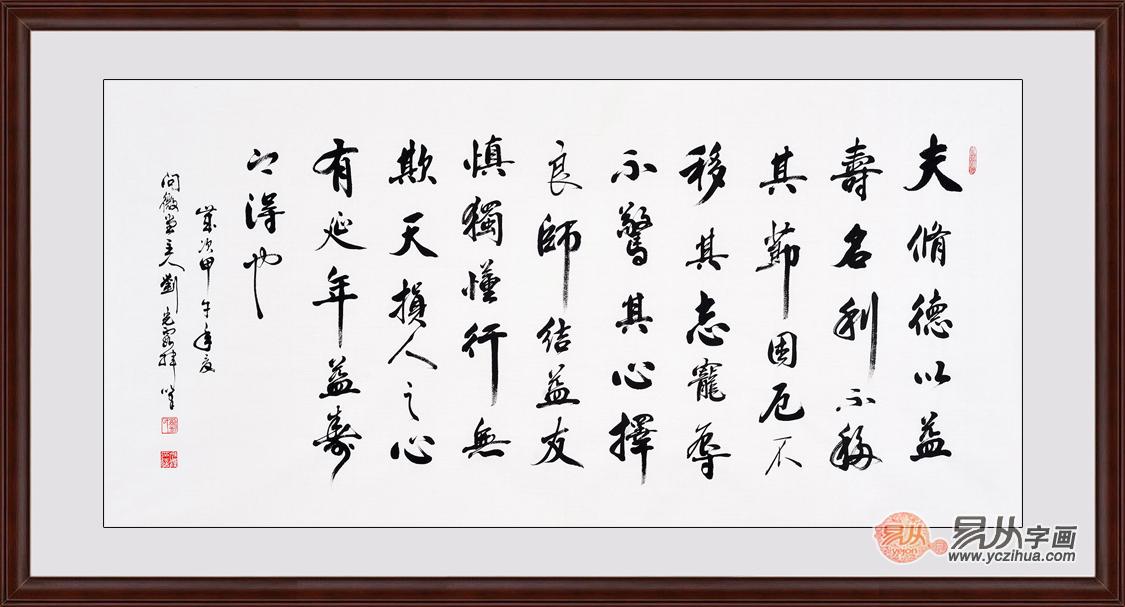 夫脩德以益
壽名利不移
其節困厄不
移其志寵辱
不驚其心擇
良師結益友
慎獨慬行無
欺天損人之心
有延年益壽
之得也
歲次甲午年夏
問微堂主人劉光霞
易从
yejon
易从字画
www.yczihua.com